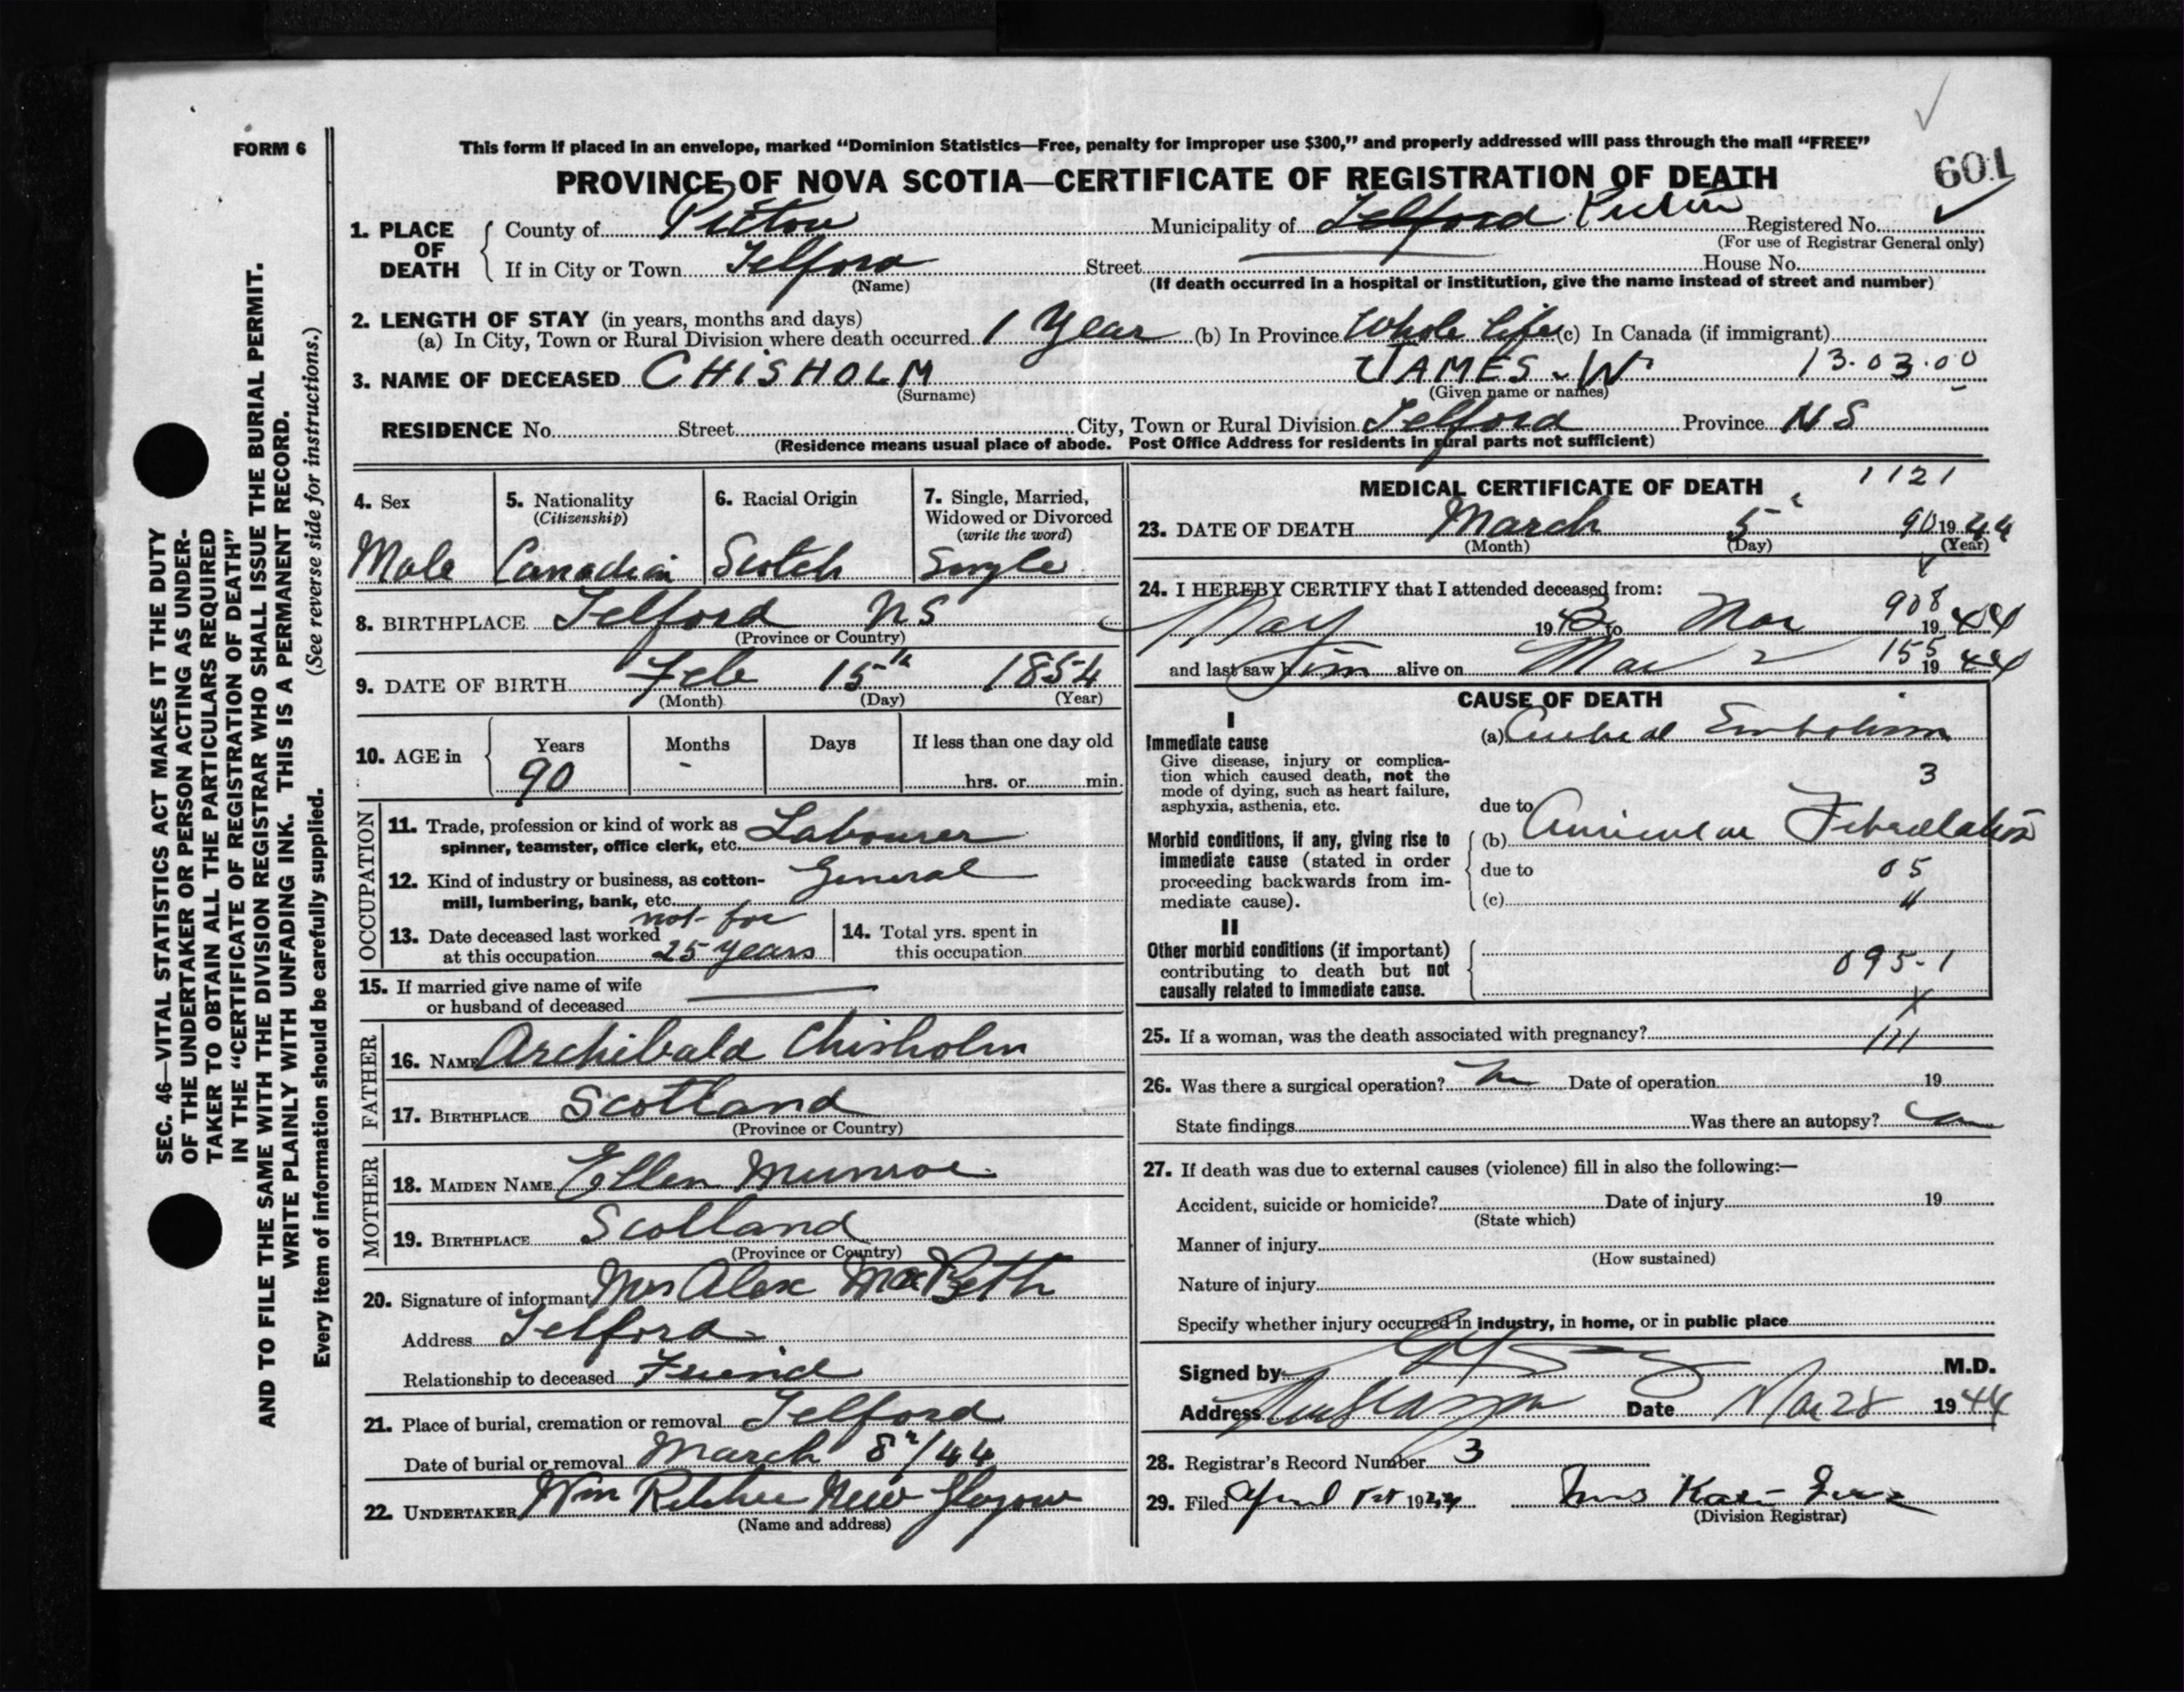 FORM 6
This form if placed in an envelope, marked “Dominion Statistics—Free, penalty for improper use $300,” and properly addressed will pass through the mail “FREE”
PROVINCE OF NOVA SCOTIA—CERTIFICATE OF REGISTRATION OF DEATH
601
1. PLACE OF DEATH
County of Pictou Municipality of Telford Pictou Registered No.
(For use of Registrar General only)
If in City or Town Telford Street House No.
(Name) (If death occurred in a hospital or institution, give the name instead of street and number)
2. LENGTH OF STAY (in years, months and days)
(a) In City, Town or Rural Division where death occurred 1 Year (b) In Province Whole life (c) In Canada (if immigrant)
3. NAME OF DECEASED CHISHOLM JAMES W 13.03.00
(Surname) (Given name or names)
RESIDENCE No. Street City, Town or Rural Division Telford Province NS
(Residence means usual place of abode. Post Office Address for residents in rural parts not sufficient)
4. Sex
Male
5. Nationality
(Citizenship)
Canadian
6. Racial Origin
Scotch
7. Single, Married,
Widowed or Divorced
(write the word)
Single
8. BIRTHPLACE Telford NS
(Province or Country)
9. DATE OF BIRTH Feb 15th 1854
(Month) (Day) (Year)
10. AGE in
Years Months Days If less than one day old
90 - hrs. or min.
OCCUPATION
11. Trade, profession or kind of work as
spinner, teamster, office clerk, etc. Labourer
12. Kind of industry or business, as cotton-
mill, lumbering, bank, etc. General
13. Date deceased last worked not for
at this occupation 25 years
14. Total yrs. spent in
this occupation
15. If married give name of wife
or husband of deceased
FATHER
16. NAME Archibald Chisholm
17. BIRTHPLACE Scotland
(Province or Country)
MOTHER
18. MAIDEN NAME Ellen Munroe
19. BIRTHPLACE Scotland
(Province or Country)
20. Signature of informant Mrs Alex MacBeth
Address Telford
Relationship to deceased Friend
21. Place of burial, cremation or removal Telford
Date of burial or removal March 8"/44
22. UNDERTAKER Wm New Glasgow
(Name and address)
MEDICAL CERTIFICATE OF DEATH 1121
23. DATE OF DEATH March 5 90 1944
(Month) (Day) (Year)
24. I HEREBY CERTIFY that I attended deceased from:
908
May 1943 to Mar 1944
155
and last saw him alive on Mar 2 1944
CAUSE OF DEATH
I
Immediate cause
Give disease, injury or complica-
tion which caused death, not the
mode of dying, such as heart failure,
asphyxia, asthenia, etc.
(a) Cerebral Embolism
3
due to
Morbid conditions, if any, giving rise to
immediate cause (stated in order
proceeding backwards from im-
mediate cause).
(b) Auricular Fibrillation
due to 05
(c) 4
II
Other morbid conditions (if important)
contributing to death but not
causally related to immediate cause.
095-1
X
25. If a woman, was the death associated with pregnancy? 111
26. Was there a surgical operation? no Date of operation 19
State findings Was there an autopsy?
27. If death was due to external causes (violence) fill in also the following:—
Accident, suicide or homicide? Date of injury 19
(State which)
Manner of injury
(How sustained)
Nature of injury
Specify whether injury occurred in industry, in home, or in public place
Signed by M.D.
Address New Glasgow Date Mar 28 1944
28. Registrar's Record Number 3
29. Filed April 1st 1944 Mrs
(Division Registrar)
SEC. 46—VITAL STATISTICS ACT MAKES IT THE DUTY
OF THE UNDERTAKER OR PERSON ACTING AS UNDER-
TAKER TO OBTAIN ALL THE PARTICULARS REQUIRED
IN THE “CERTIFICATE OF REGISTRATION OF DEATH”
AND TO FILE THE SAME WITH THE DIVISION REGISTRAR WHO SHALL ISSUE THE BURIAL PERMIT.
WRITE PLAINLY WITH UNFADING INK. THIS IS A PERMANENT RECORD.
Every item of information should be carefully supplied. (See reverse side for instructions.)